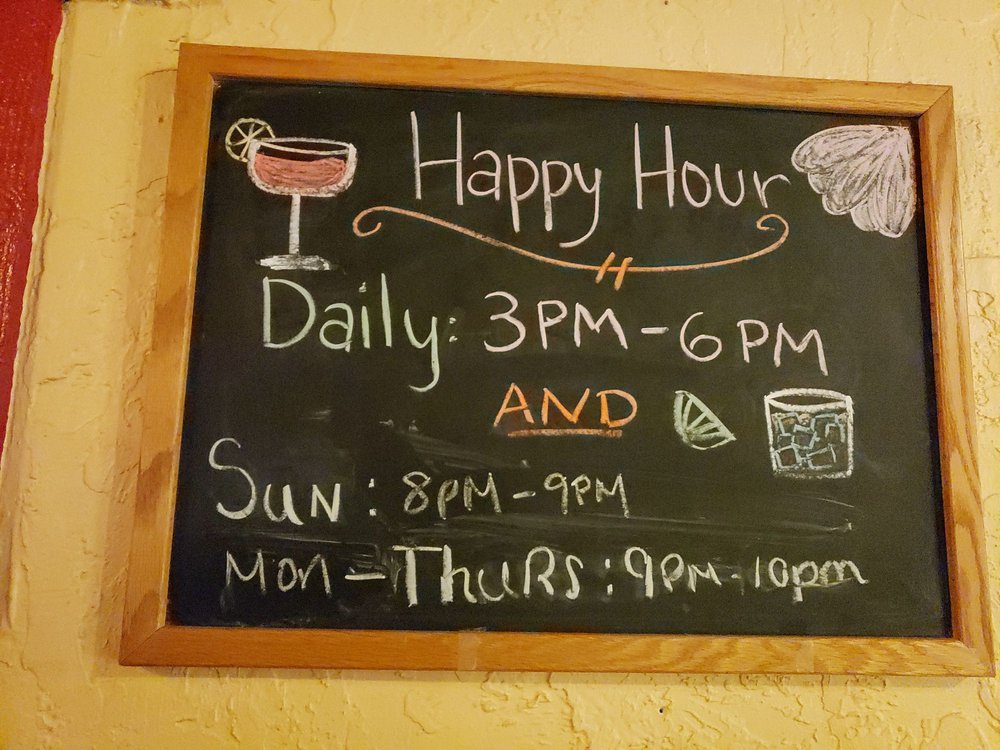 Happy Hour
Daily: 3PM - 6PM
AND
SUN: 8PM - 9PM
Mon - ThuRS: 9PM - 10pm